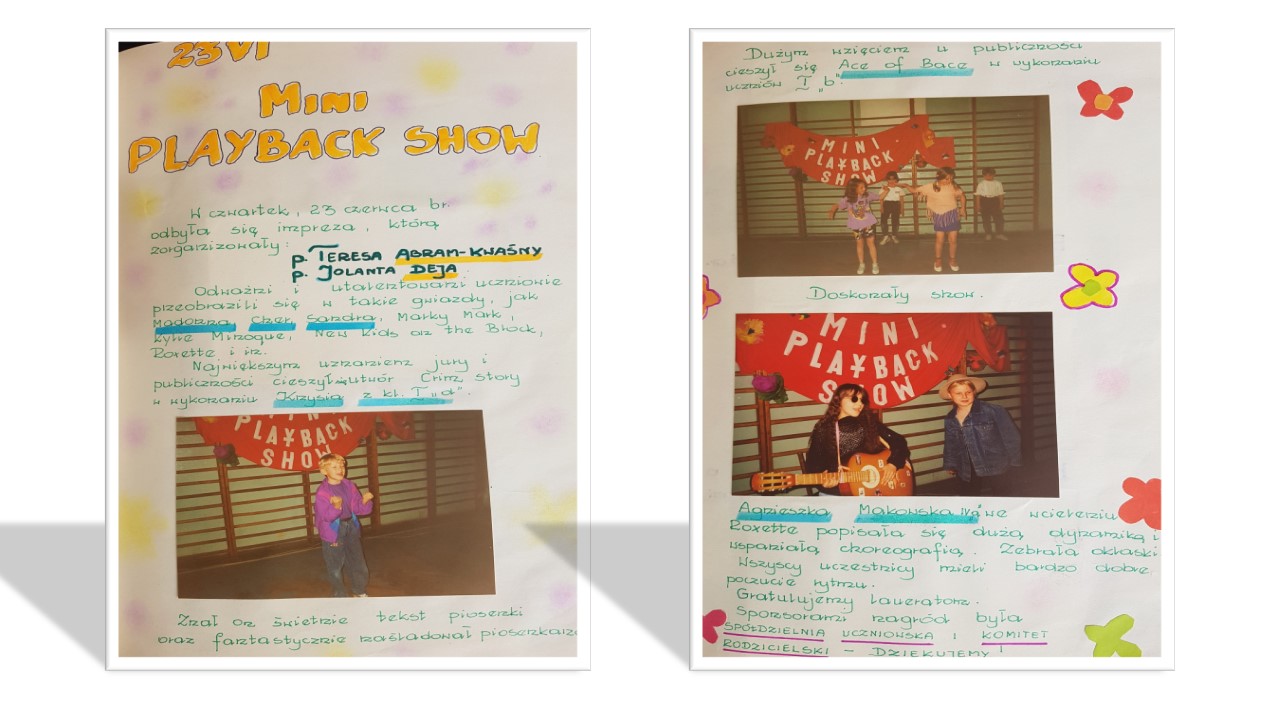 23 VI
MINI
PLAYBACK SHOW
W czwartek, 23 czerwca br.
odbyła się impreza, którą
zorganizowały:
p. TERESA ABRAM-KWAŚNY
p. JOLANTA DEJA
Odważni i utalentowani uczniowie
przeobrazili się w takie gwiazdy, jak
Madonna, Cher, Sandra, Marky Mark,
Kylie Minogue, New Kids on the Block,
Roxette i in.
Największym uznaniem jury i
publiczności cieszył się utwór Crime story
w wykonaniu Krzysia z kl. I „a".
MINI
PLAYBACK
SHOW
Znał on świetnie tekst piosenki
oraz fantastycznie naśladował piosenkarza
Dużym wzięciem u publiczności
cieszył się Ace of Bace w wykonaniu
uczniów I „b".
MINI
PLAYBACK
SHOW
Doskonały show.
MINI
PLAYBACK
SHOW
Agnieszka Makowska IVa we wcieleniu
Roxette popisała się dużą dynamiką i
wspaniałą choreografią. Zebrała oklaski
Wszyscy uczestnicy mieli bardzo dobre
poczucie rytmu.
Gratulujemy laureatom.
Sponsorami nagród była
SPÓŁDZIELNIA UCZNIOWSKA i KOMITET
RODZICIELSKI – DZIĘKUJEMY!